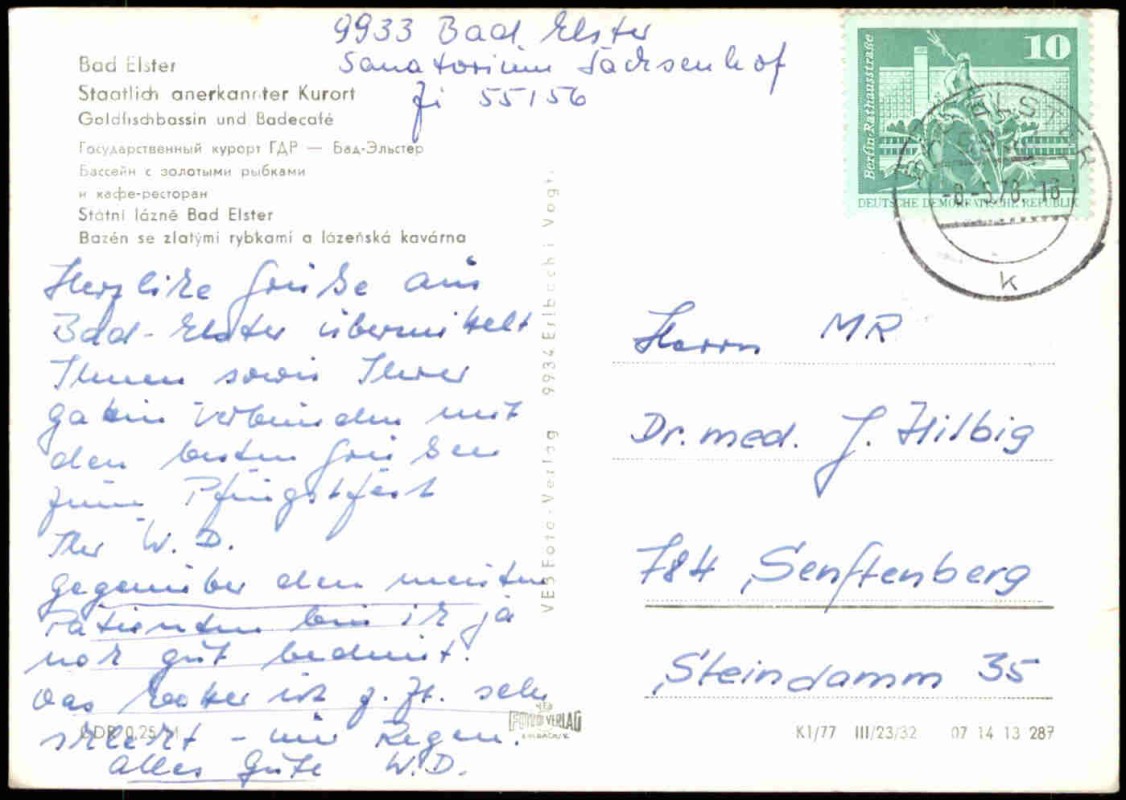 9933 Bad Elster
Sanatorium Sachsenhof
Zi 55156
Bad Elster
Staatlich anerkannter Kurort
Goldfischbassin und Badecafé
Государственный курорт ГДР — Бад-Эльстер
Бассейн с золотыми рыбками
и кафе-ресторан
Státní lázně Bad Elster
Bazén se zlatými rybkami a lázeňská kavárna
Herzliche Grüße aus
Bad-Elster übermittelt
Ihnen sowie Ihrer
Gattin verbunden mit
den besten Grüßen
zum Pfingstfest
Ihr W.D.
Gegenüber den meisten
Patienten bin ich ja
noch gut bedient.
Das Wetter ist z.Zt. sehr
schlecht - nur Regen.
Alles Gute W.D.
DDR 0,25 M
VEB Foto-Verlag 9934 Erlbach i. Vogtl.
FOTO VERLAG
ERLBACH/V.
10
Berlin-Rathausstraße
DEUTSCHE DEMOKRATISCHE REPUBLIK
BAD ELSTER
-8.-5.78-18
k
Herrn MR
Dr. med. J. Hilbig
784 Senftenberg
Steindamm 35
K1/77 III/23/32 07 14 13 287